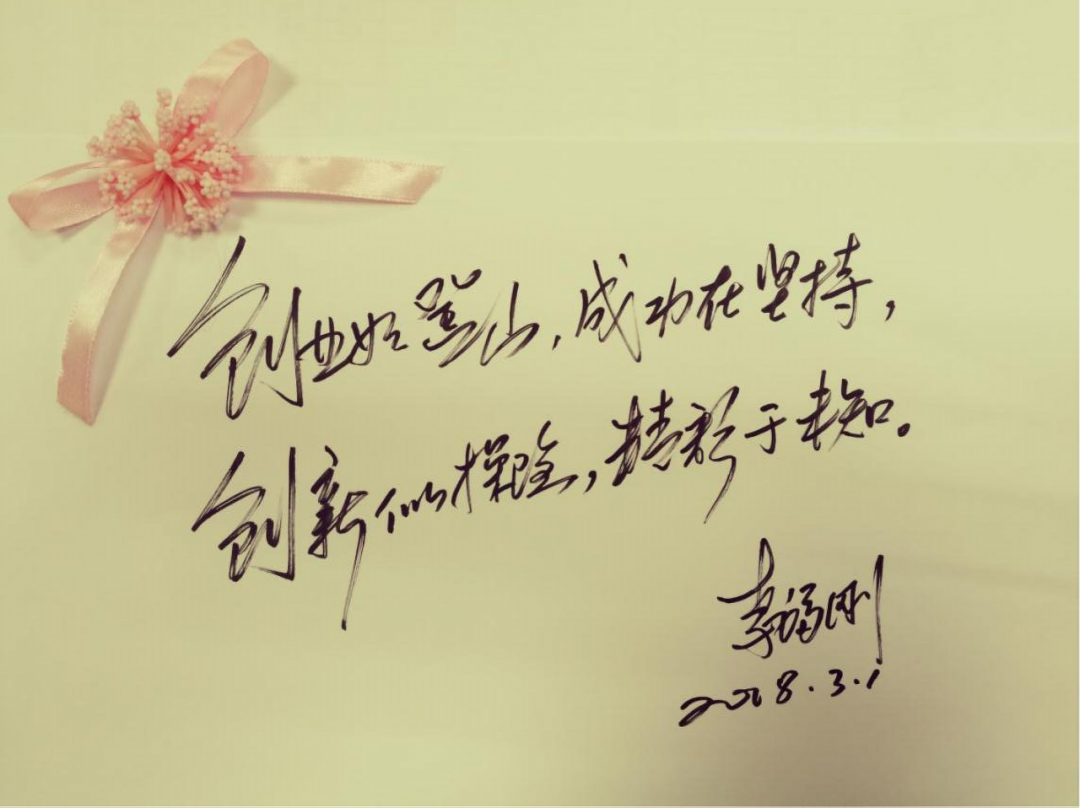 创业如登山,成功在坚持,
创新似探险,精彩于未知。
李福刚
2018.3.1